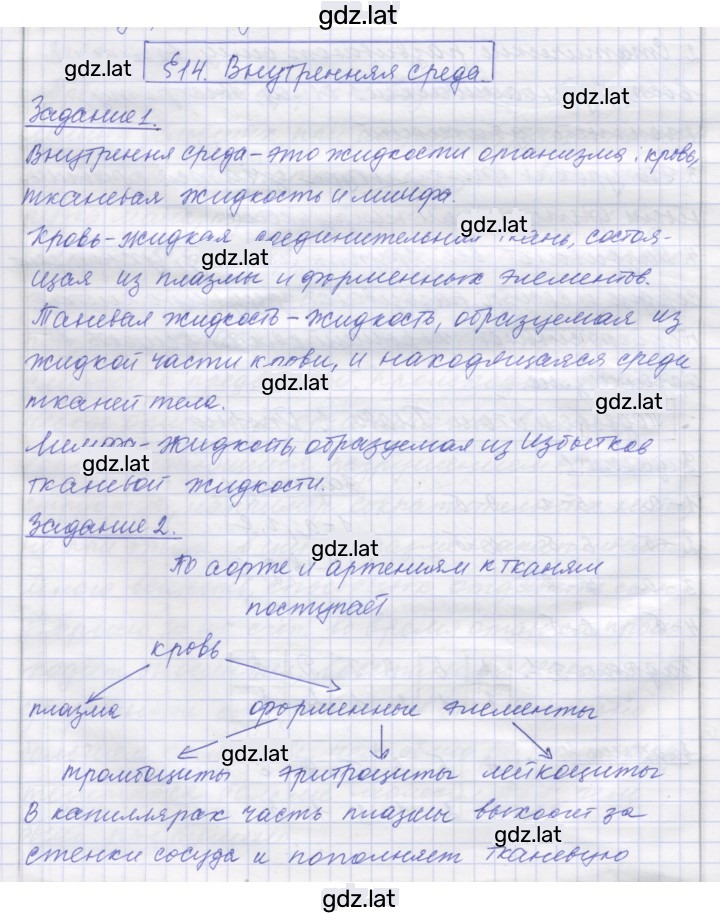 gdz.lat
§14. Внутренняя среда.
gdz.lat
gdz.lat
Задание 1.
Внутрення среда - это жидкости организма: кровь,
тканевая жидкость и лимфа.
gdz.lat
Кровь - жидкая соединительная ткань, состоя-
gdz.lat
щая из плазмы и форменных элементов.
Таневая жидкость - жидкость, образуемая из
жидкой части крови, и находящаяся среди
gdz.lat
тканей тела.
gdz.lat
Лимфа - жидкость, образуемая из избытков
gdz.lat
тканевой жидкости.
Задание 2.
gdz.lat
По аорте и артениям к тканям
поступает
кровь
плазма форменные элементы
gdz.lat
тромбоциты эритроциты лейкоциты
В капиллярах часть плазмы выходит за
gdz.lat
стенки сосуда и пополняет тканевую
gdz.lat